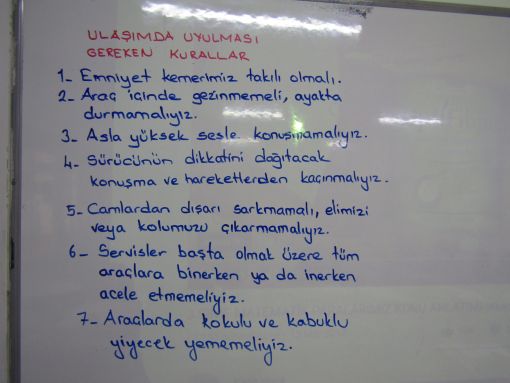 ULAŞIMDA UYULMASI
GEREKEN KURALLAR
1- Emniyet kemerimiz takılı olmalı.
2- Araç içinde gezinmemeli, ayakta
durmamalıyız.
3- Asla yüksek sesle konuşmamalıyız.
4- Sürücünün dikkatini dağıtacak
konuşma ve hareketlerden kaçınmalıyız.
5- Camlardan dışarı sarkmamalı, elimizi
veya kolumuzu çıkarmamalıyız.
6- Servisler başta olmak üzere tüm
araçlara binerken ya da inerken
acele etmemeliyiz.
7- Araçlarda kokulu ve kabuklu
yiyecek yememeliyiz.